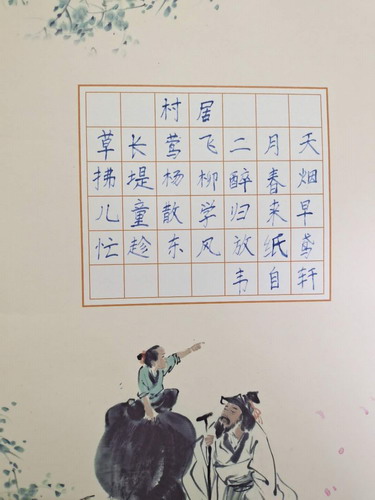 村居
草长莺飞二月天
拂堤杨柳醉春烟
儿童散学归来早
忙趁东风放纸鸢
韦自轩